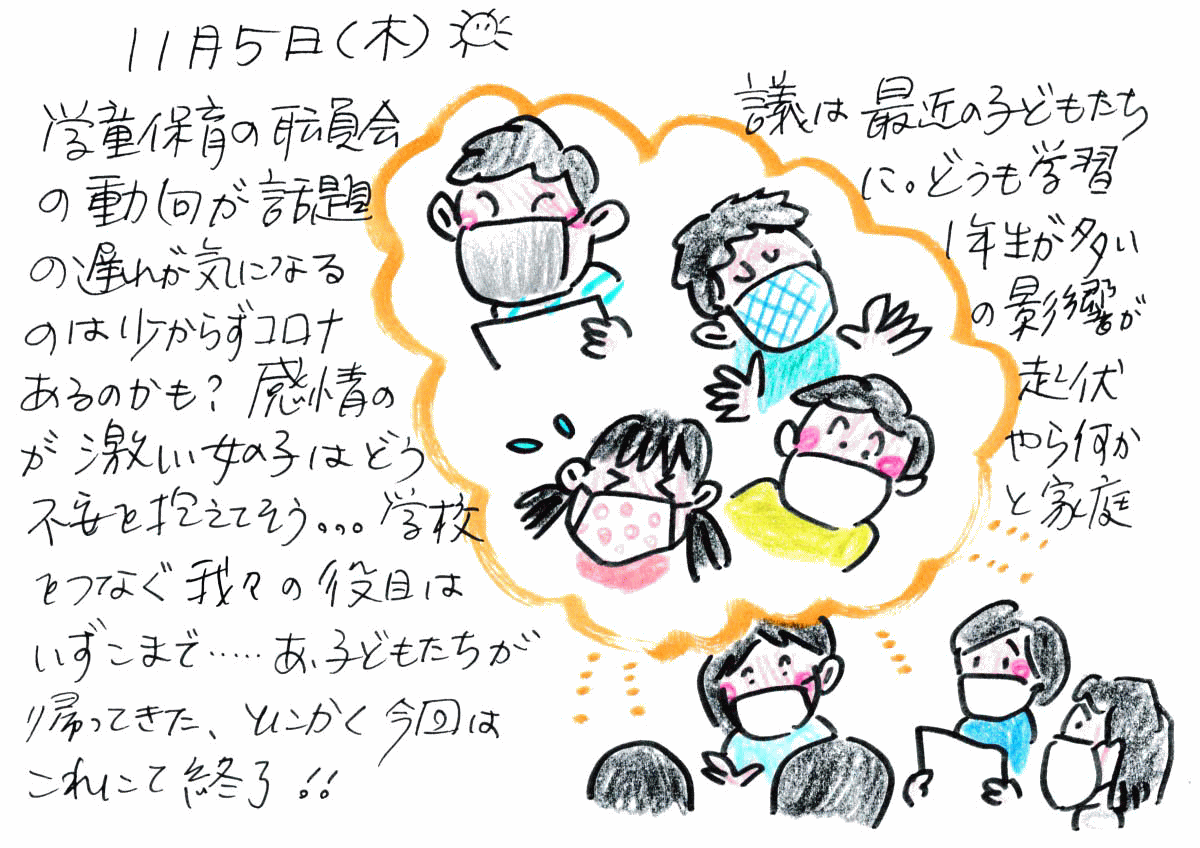 11月5日(木)
学童保育の職員会議は最近の子どもたち
の動向が話題に。どうも学習
の遅れが気になる1年生が多い
のは少からずコロナの影響が
あるのかも?感情の起伏
が激しい女の子はどうやら何か
不安を抱えてそう。。。学校と家庭
をつなぐ我々の役目は
いずこまで……あ、子どもたちが
帰ってきた、とにかく今回は
これにて終了!!